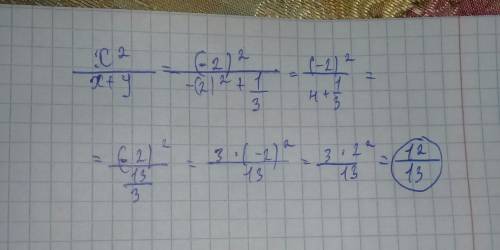 x²/(x+y) = (-2)²/(-(2)² + 1/3) = (-2)²/(4 + 1/3) =
= (-2)²/(13/3) = 3·(-2)²/13 = 3·2²/13 = 12/13